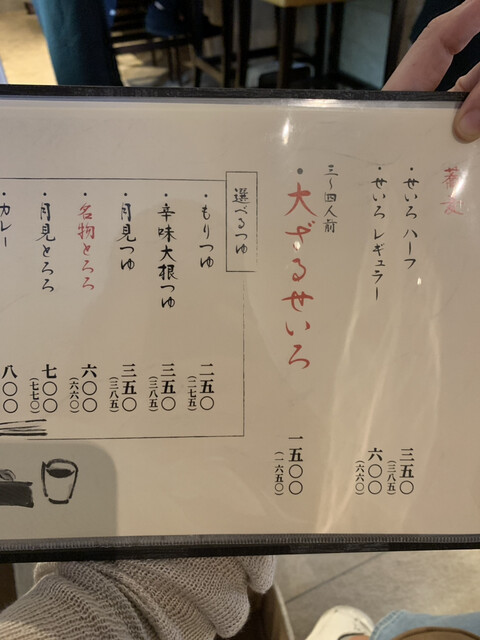 蕎麦
・せいろ ハーフ 三五〇
（三八五）
・せいろ レギュラー 六〇〇
（六六〇）
三〜四人前
・大ざるせいろ 一五〇〇
（一六五〇）
選べるつゆ
・もりつゆ 二五〇
（二七五）
・辛味大根つゆ 三五〇
（三八五）
・月見つゆ 三五〇
（三八五）
・名物とろろ 六〇〇
（六六〇）
・月見とろろ 七〇〇
（七七〇）
・カレー 八〇〇